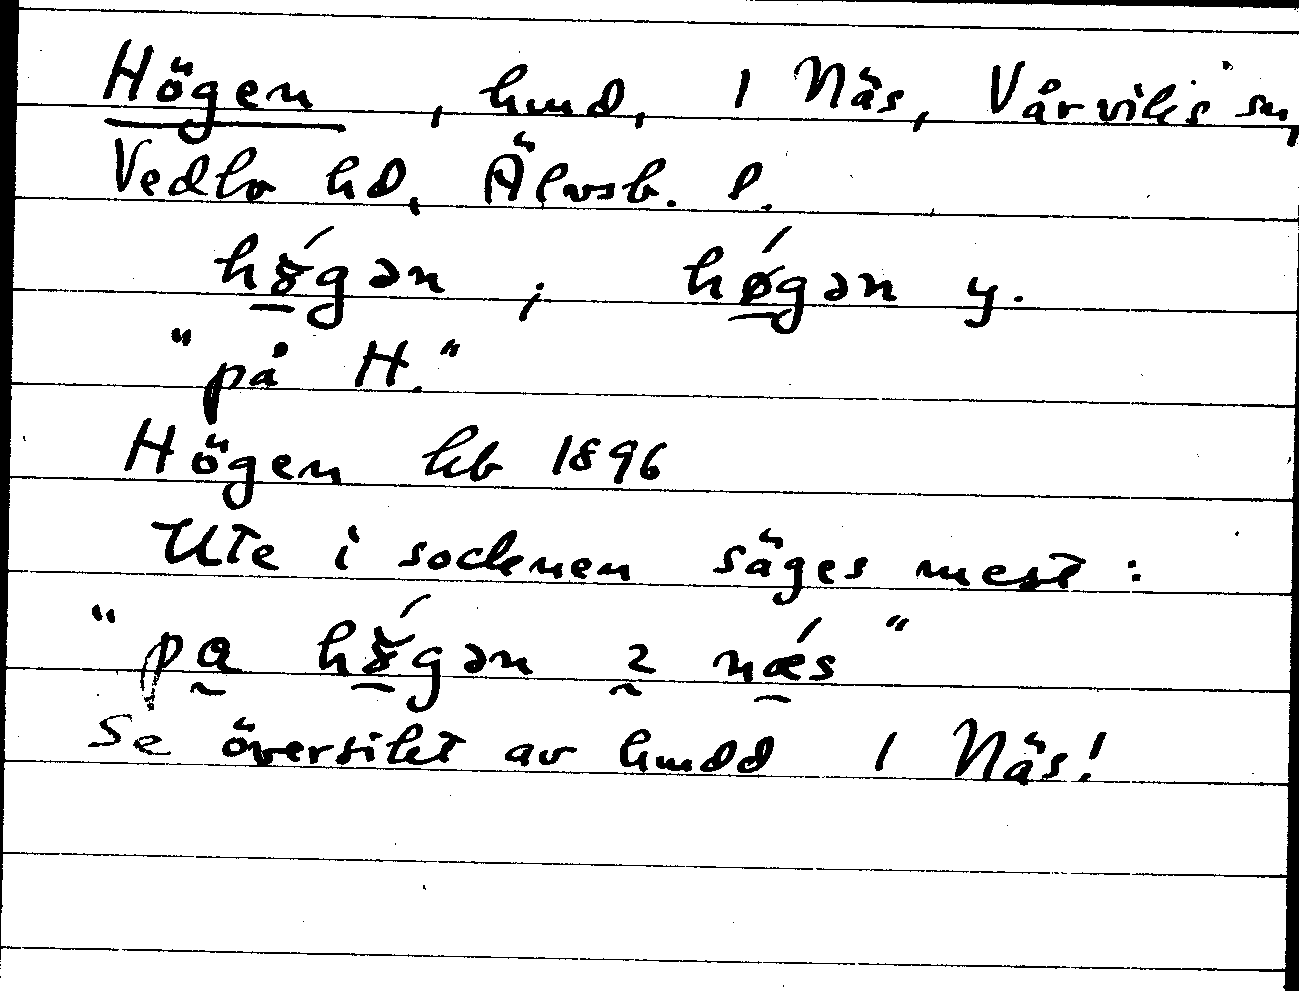 Högen, hmd, 1 Näs, Vårviks sn,
Vedbo hd, Älvsb. l.
hɤ́gən ; hǿgən y.
"på H."
Högen hb 1896
Ute i socknen säges mest :
"pa hɤ́gən ı nǽs"
Se översikt av hmdd 1 Näs!